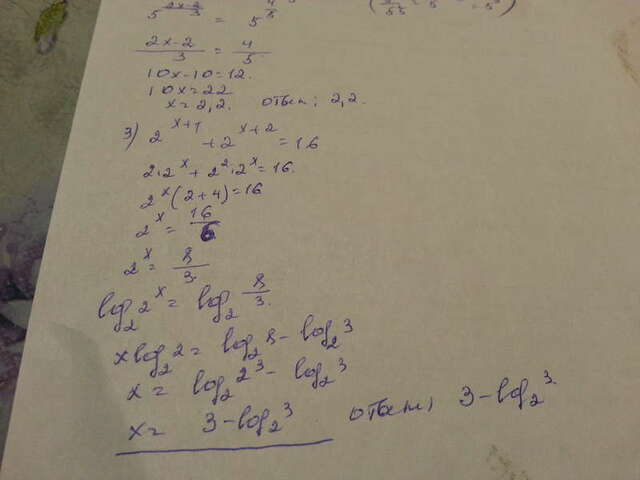 5^{\frac{2x-2}{3}} = 5^{\frac{4}{5}}
\frac{2x-2}{3} = \frac{4}{5}
10x-10=12.
10x=22
x=2,2. ответ: 2,2.
3) 2^{x+1} + 2^{x+2} = 16
2·2^x + 2^2·2^x = 16.
2^x(2+4)=16
2^x = \frac{16}{6}
2^x = \frac{8}{3}.
log_2 2^x = log_2 \frac{8}{3}.
x log_2 2 = log_2 8 - log_2 3
x = log_2 2^3 - log_2 3
x = 3-log_2 3 ответ: 3-log_2 3.